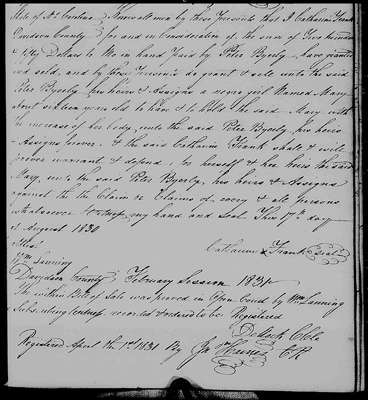 State of No Carolina Know all men by these Presents that I Catharin Frank
Davidson County for and in Consideration of the sum of Two hundred
& fifty Dollars to Me in hand paid by Peter Byerly, have granted
and sold, and by these Presents do grant & sell unto the said
Peter Byerly his heirs & Assigns a negro girl Named Mary
about sixteen years old to have & to hold the said Mary with
the increase of her body, unto the said Peter Byerly his heirs
& Assigns forever. & the said Catharin Frank shall & will
forever warrant & defend, for herself & her heirs the said
Mary, unto the said Peter Byerly, his heirs & Assigns
against the Claim or Claims of every & all persons
whatsoever. my hand and Seal This 17th day
of August 1830
Catharin X Frank Seal
Wm Lanning
Davidson County February Session 1831
The within Bill of Sale was proved in Open Court by Wm Lanning
recorded & ordered to be Registered
D Mock Clk
Registered April the 1831 By Jn C.R.